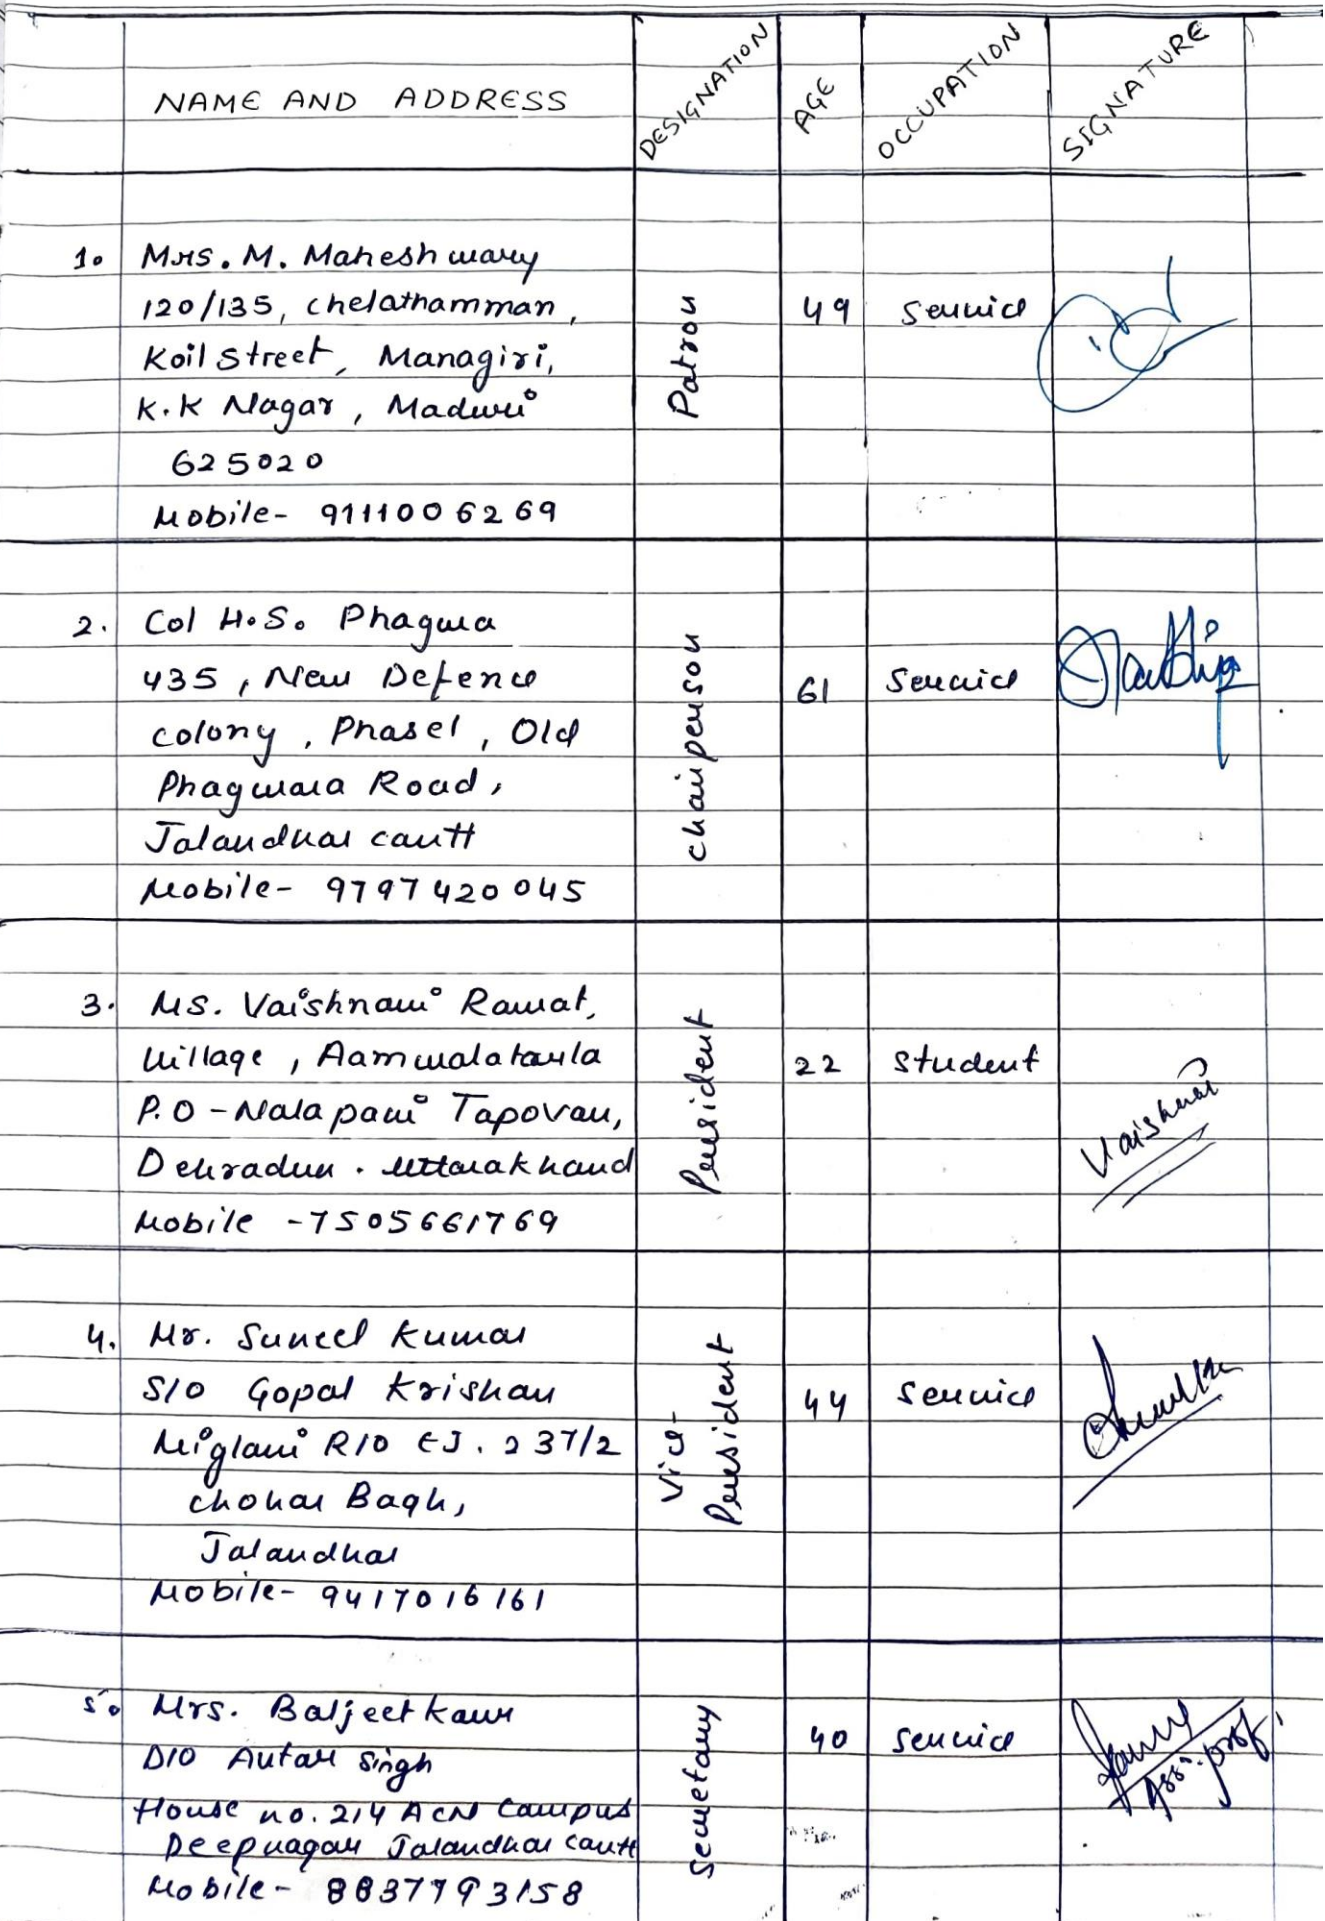 NAME AND ADDRESS DESIGNATION AGE OCCUPATION SIGNATURE
1. Mrs. M. Maheshwary
120/135, Chelathamman,
Koil Street, Managiri,
K.K Nagar, Madurai
625020
Mobile- 9111006269
Patron 49 Service
2. Col H.S. Phagura
435, New Defence
colony, Phase1, Old
Phagwara Road,
Jalandhar cantt
Mobile- 9797420045
Chairperson 61 Service
3. Ms. Vaishnavi Rawat,
Village, Aamwalatarla
P.O - Nalapani Tapovan,
Dehradun. Uttarakhand
Mobile -7505661769
President 22 Student Vaishnavi
4. Mr. Suneel Kumar
S/O Gopal Krishan
Miglani R/O EJ. 237/2
Chohar Bagh,
Jalandhar
Mobile- 9417016161
Vice-
President 44 Service
5. Mrs. Baljeet kaur
D/O Autar Singh
House no. 214 ACN Campus
Deepnagar Jalandhar cantt
Mobile- 8837793158
Secretary 40 Service
Assi. prof.